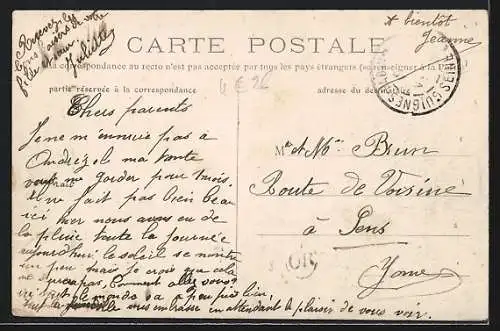 à bientôt
Jeanne
Recevez les
CARTE POSTALE
La correspondance au recto n'est pas acceptée par tous les pays étrangers (se renseigner à la Poste)
partie réservée à la correspondance
adresse du destinataire
4 € 26
Chers parents
Je ne m'ennuie pas à
Andrezel ma tante
me garder pour mois.
Il ne fait pas bien beau
ici hier nous avons eu de
la pluie toute la journée
aujourd'hui le soleil se montre
un peu mais je crois que cela
ne durera pas. Comment allez vous
ici tout le monde va à peu près bien
embrasse en attendant le plaisir de vous voir.
Mr et Mme Brun
Route de Voisine
à Sens
Yonne
OR
GUIGNES